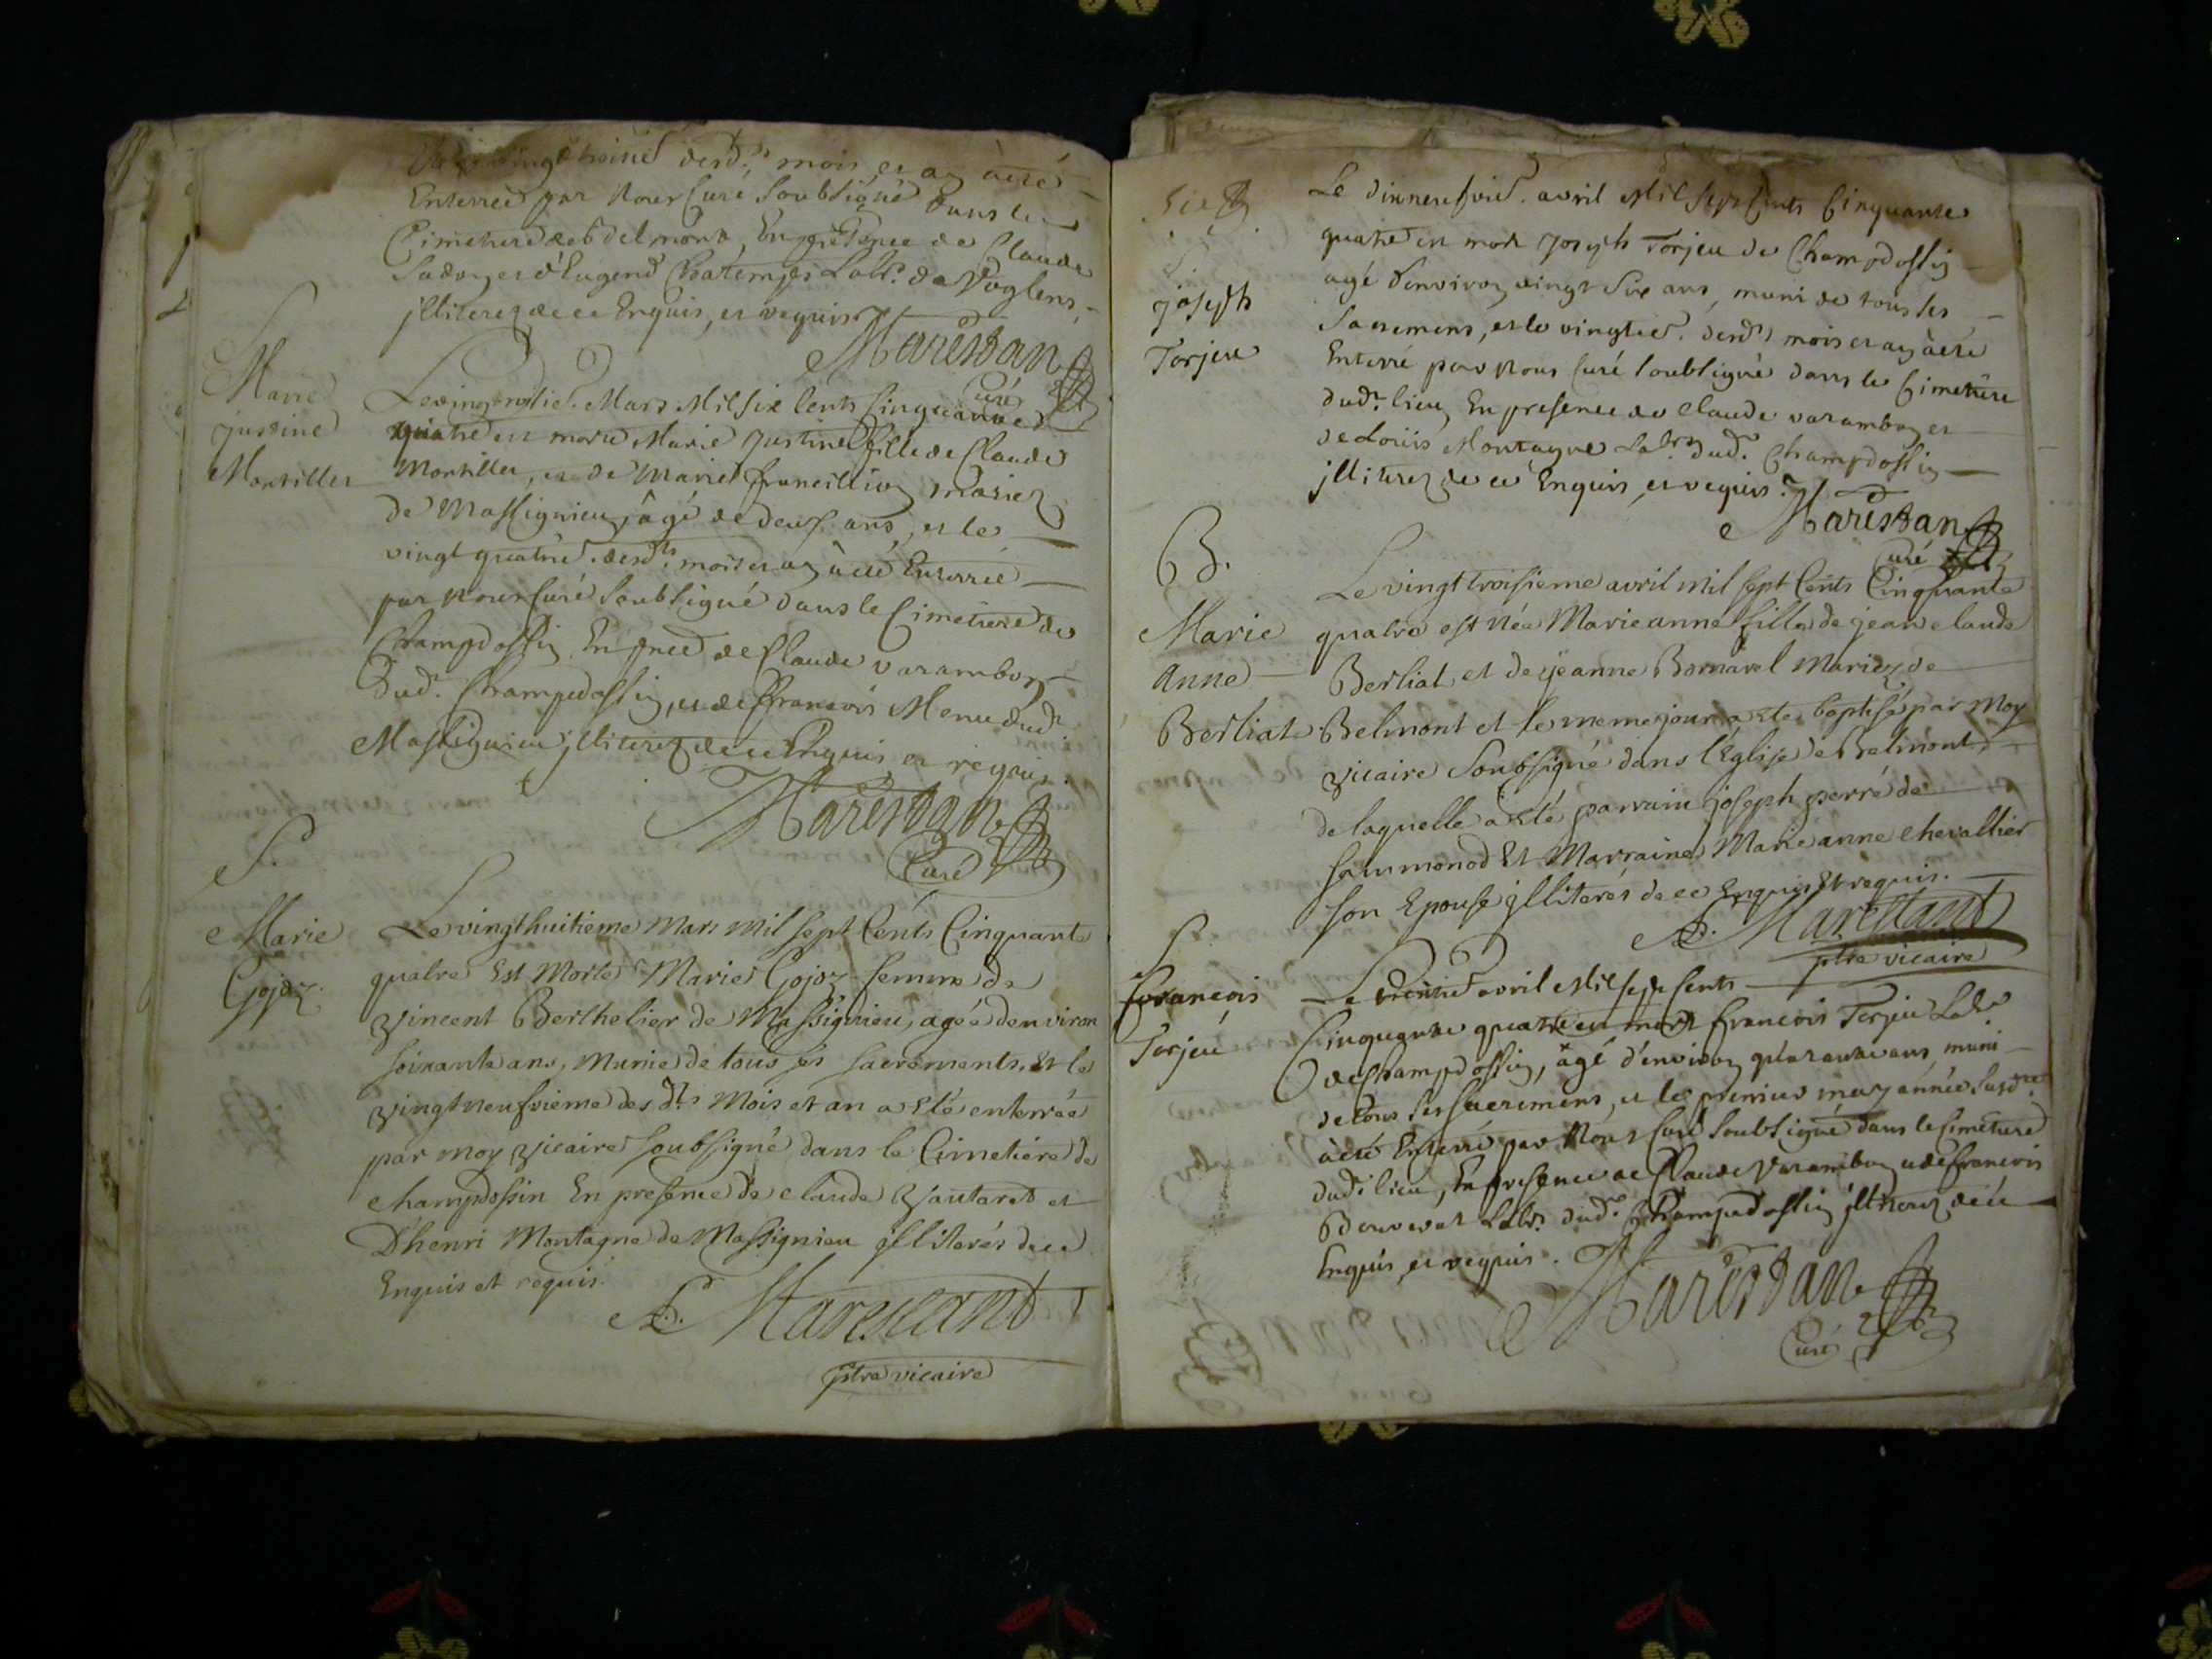 vingt troisie desd.ts mois et an à eté
Enterrée par Nous Curé Soubsigné dans le
Cimetiere de Belmont, En presence de Claude
et d'Eugend Labr. de Voglens,
jlliterez de ce Enquis, et requis.
Marestan
Curé
Marie
justine
Montillet
Le vingt Mars Mil six Cents Cinquante
quatre est morte Marie Justine fille de Claude
Montillet, et de Marie francillion mariez
de Massignieu, âgé de deux ans, et le
vingt quatrie. desd.ts mois et an à eté Enterrée
par Nous Curé Soubsigné dans le Cimetiere de
Champdossin En pnce de Claude varambon
dud.t Champdossin, et de francois Menu dud.t
Massignieu jlliterez de ce Enquis et requis.
Marestan
Curé
S.
Marie
Gojoz
Le vingt huitieme Mars mil sept Cents Cinquante
quatre Est Morte Marie Gojoz femme de
Vincent Berthelier de Massignieu, agée denviron
soixante ans, Munie de tous ses sacrements, et le
vingt neufvieme des d.ts Mois et an a eté enterrée
par moy vicaire soubsigné dans le Cimetiére de
champdossin En presence de claude Vautaret et
D'henri Montagne de Massignieu jlliterés de ce
Enquis et requis.
Marestant
ptre vicaire
S.
joseph
Torjeu
Le dixneufvie. avril Mil sept Cents Cinquante
quatre est mort joseph Torjeu de Champdossin
agé d'environ vingt six ans, muni de tous les
sacremens, et le vingtie. desd.ts mois et an à eté
Enterré par Nous Curé soubsigné dans le Cimetiere
dud.t lieu, En presence de Claude varambon et
de Loüis Montagne Lab.rs dud.t Champdossin
jlliterez de ce Enquis, et requis.
Marestan
Curé
B.
Marie
Anne
Berliat
Le vingt troisieme avril mil sept Cents Cinquante
quatre est née Marie anne fille de jean claude
Berliat et de jeanne Bornarel Mariez de
Belmont et le meme jour a ete baptisé par moy
vicaire Soubsigné dans l'Eglise de Belmont
de laquelle a eté parrain joseph perré de
sammonod Et Marraine Marie anne chevallier
son Epouse jlliterés de ce Enquis Et requis.
Marestant
ptre vicaire
S.
francois
Torjeu
Le trentie avril Mil sept Cents
Cinquante quatre est mort francois Torjeu Labr
de Champdossin, âgé d'environ quarante ans, muni
de tous ses sacremens, et le premier may année susd.te
à eté Enterré par Nous Curé Soubsigné dans le Cimetiere
dud.t lieu, En presence de Claude Varambon et de francois
Labr. dud.t Champdossin jlliterez de ce
Enquis, et requis.
Marestan
Curé